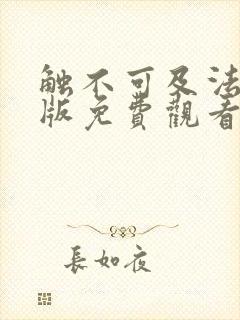 触不可及法
版免費觀看
長如夜